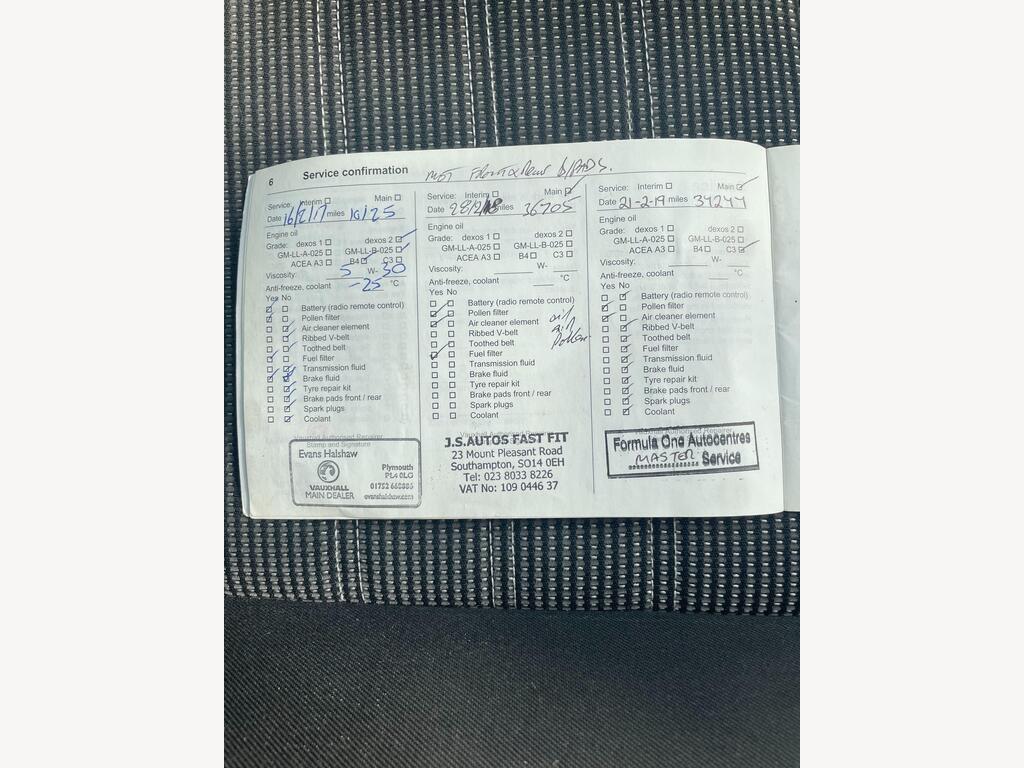 6
Service confirmation
MOT Front & Rear B/PADS.
Service: Interim
Main
Date 16/2/17 miles
Engine oil
Grade: dexos 1 dexos 2
GM-LL-A-025 GM-LL-B-025
ACEA A3 B4 C3
Viscosity: 5 W- 30
Anti-freeze, coolant -25 °C
Yes No
Battery (radio remote control)
Pollen filter
Air cleaner element
Ribbed V-belt
Toothed belt
Fuel filter
Transmission fluid
Brake fluid
Tyre repair kit
Brake pads front / rear
Spark plugs
Coolant
Vauxhall Authorised Repairer
Stamp and Signature
Evans Halshaw
VAUXHALL
MAIN DEALER
Plymouth
PL4 0LG
01752
evanshalshaw.com
Service: Interim Main
Date miles 36705
Engine oil
Grade: dexos 1 dexos 2
GM-LL-A-025 GM-LL-B-025
ACEA A3 B4 C3
Viscosity: W-
Anti-freeze, coolant °C
Yes No
Battery (radio remote control)
Pollen filter
Air cleaner element
Ribbed V-belt
Toothed belt
Fuel filter
Transmission fluid
Brake fluid
Tyre repair kit
Brake pads front / rear
Spark plugs
Coolant
oil
air
Pollen
Vauxhall Authorised Repairer
J.S.AUTOS FAST FIT
23 Mount Pleasant Road
Southampton, SO14 0EH
Tel: 023 8033 8226
VAT No: 109 0446 37
Service: Interim Main
Date 21-2-19 miles 37277
Engine oil
Grade: dexos 1 dexos 2
GM-LL-A-025 GM-LL-B-025
ACEA A3 B4 C3
Viscosity: W-
Anti-freeze, coolant °C
Yes No
Battery (radio remote control)
Pollen filter
Air cleaner element
Ribbed V-belt
Toothed belt
Fuel filter
Transmission fluid
Brake fluid
Tyre repair kit
Brake pads front / rear
Spark plugs
Coolant
Vauxhall Authorised Repairer
Formula One Autocentres
MASTER Service